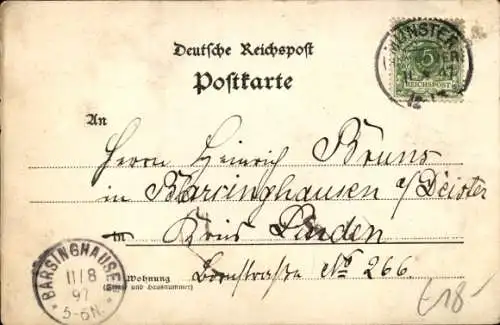 Deutsche Reichspost
Postkarte
MUNSTER
5
REICHSPOST
An
Herrn Heinrich Bruns
in Barsinghausen a/Deister
in Kreis Linden
Wohnung
(Straße und Hausnummer)
No 266.
BARSINGHAUSEN
11/8
97
5-6N.